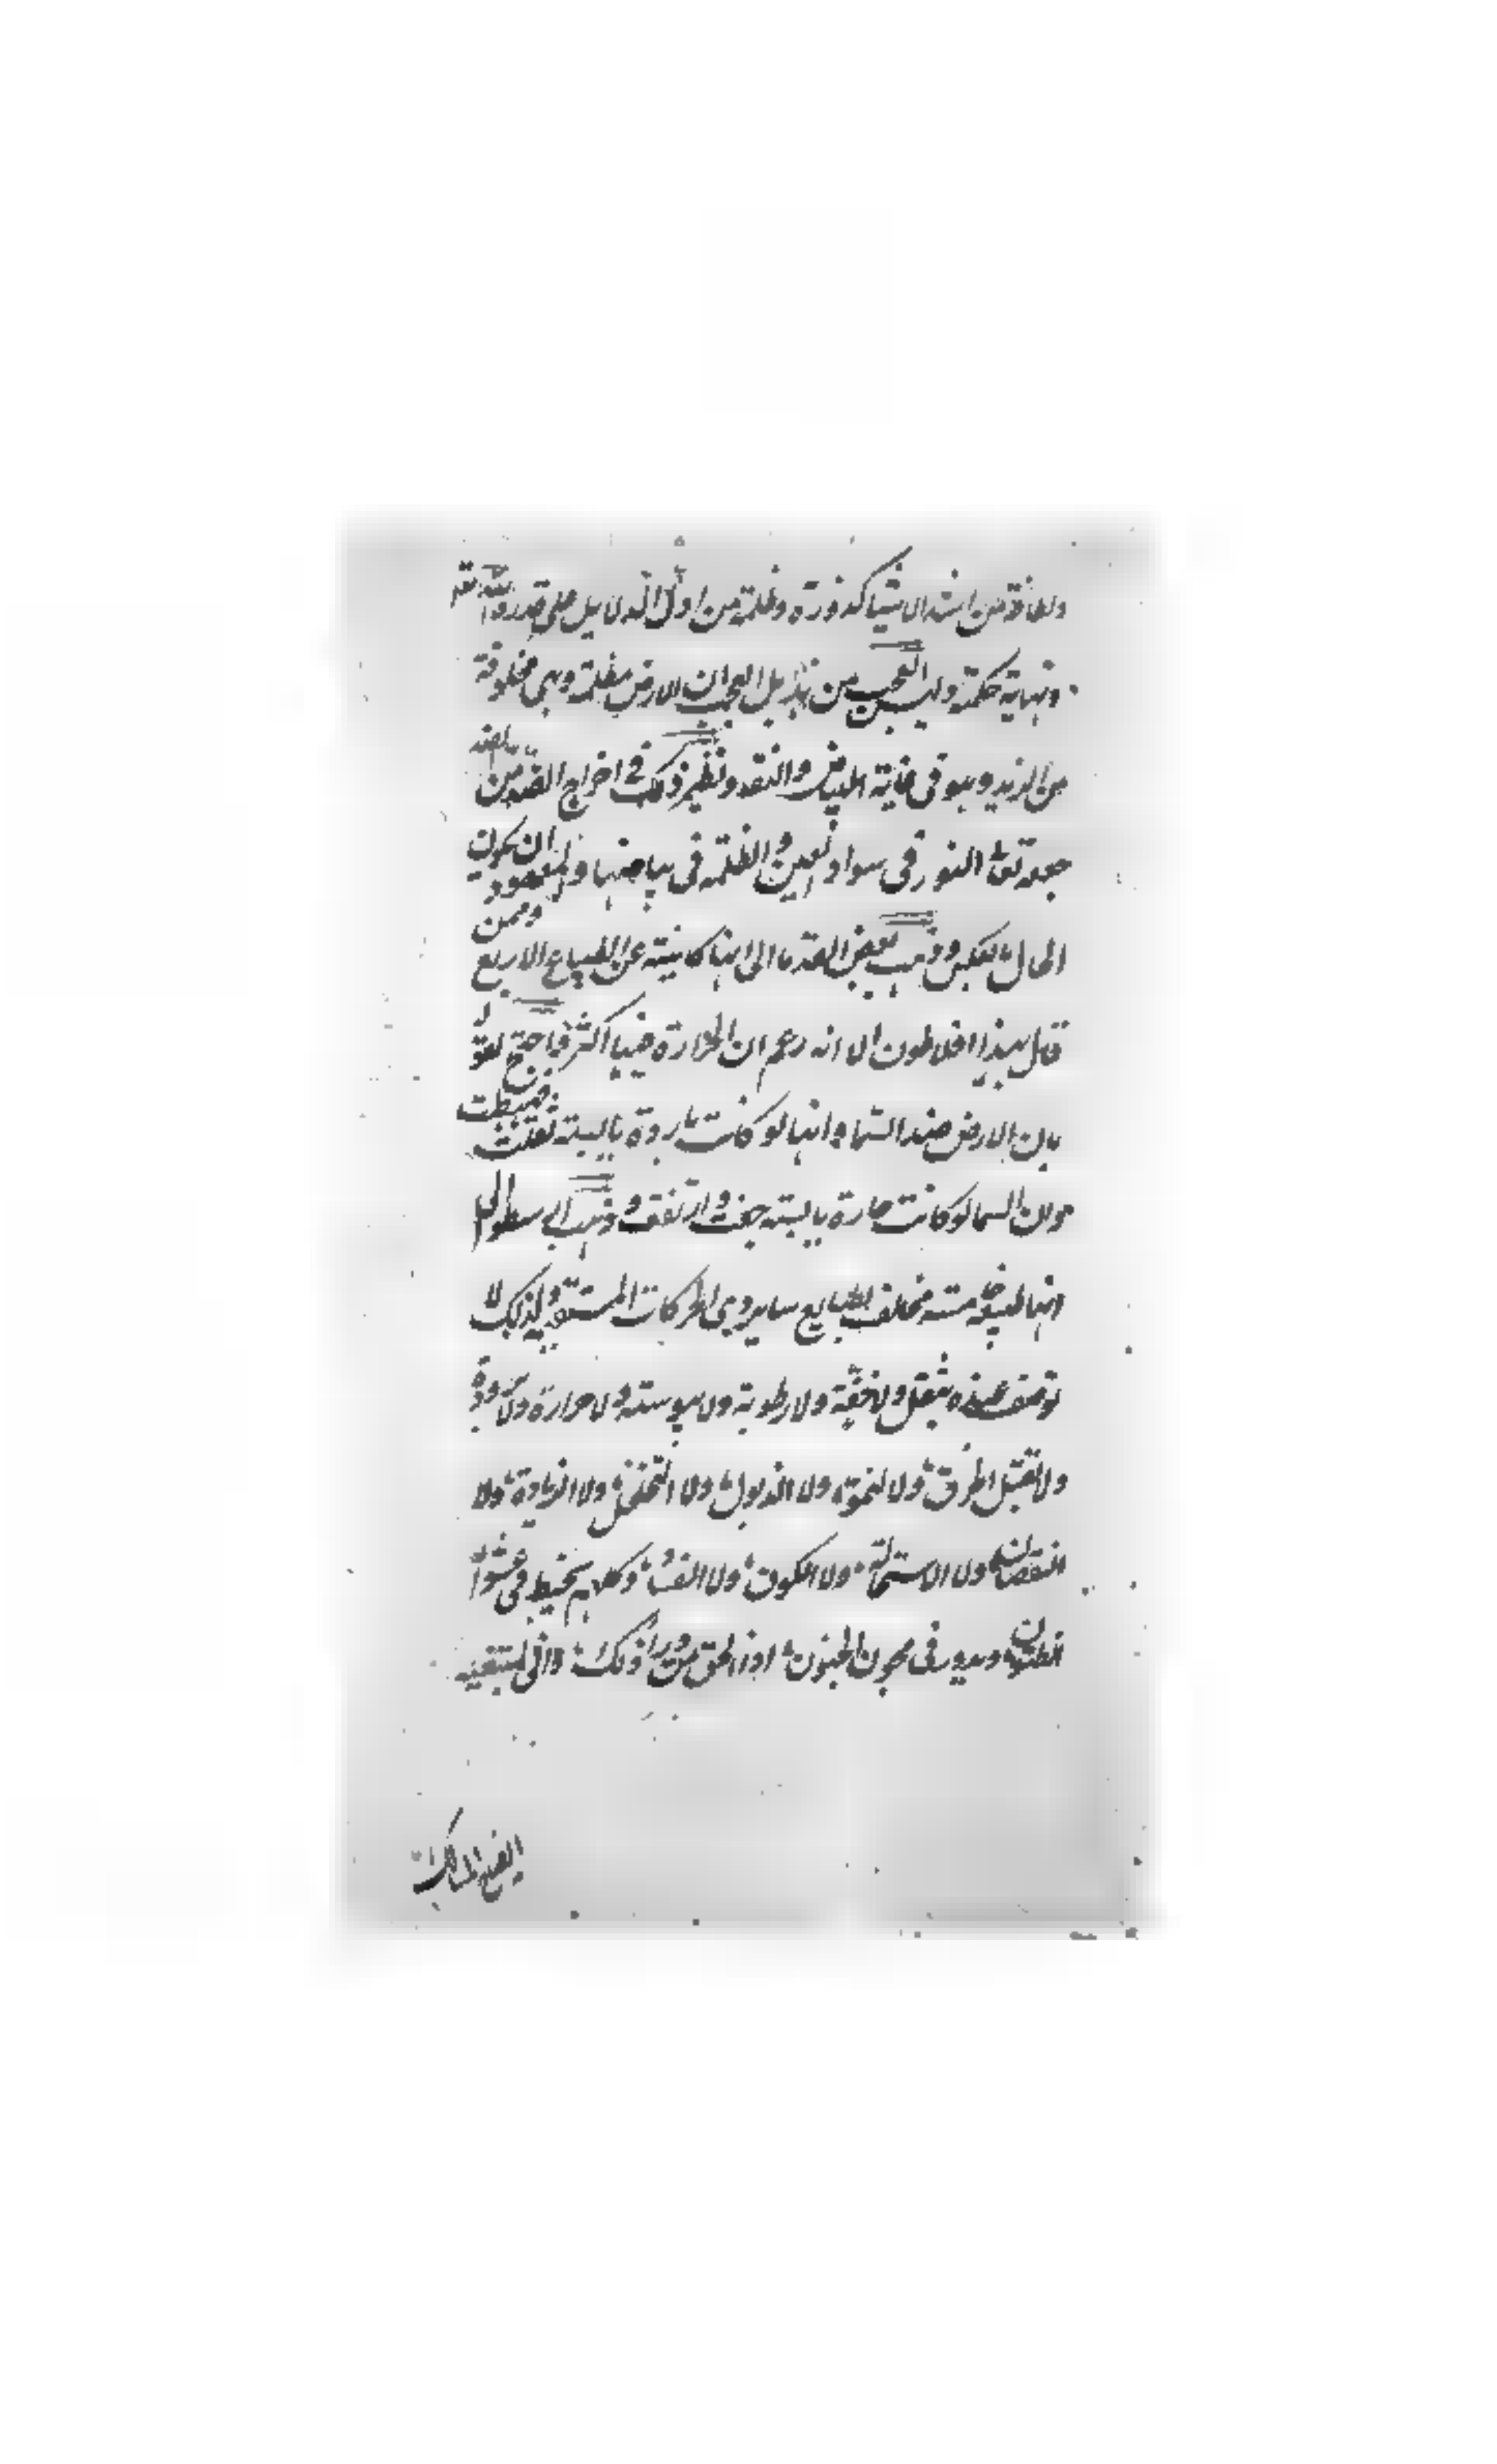 ولطافة من اشد الاشيا كدورة وظلمة من اول الدلايل على قدرة الله تعالى
ونهاية حكمته وليس العجب من هذا بل العجب ان الارض مظلمة وهى مخلوقة
من الزبد وهو فى غاية البياض والنقد ونظير ذلك فى اخراج الضد من الضد
جعله تعالى النور فى سواد العين والظلمة فى بياضها والمعهود ان يكون
الحال بالعكس وذهب بعض القدما الى انها كاينة عن الطبايع الاربع وممن
قال بهذا افلاطون الا انه زعم ان الحرارة فيها اكثر فاحتج لقوله
بان الارض ضد السما وانها لو كانت باردة يابسة ثقلت فهبطت
وان السما لو كانت حارة يابسة خفت وارتفعت وذهب ارسطو الى
انها طبيعة خامسة مخالفة لطبايع ساير ذوى الحركات المستقيمة ولذلك لا
توصف عنده بثقل ولا خفة ولا رطوبة ولا يبوسة ولا حرارة ولا برودة
ولا تقبل الخرق ولا النمو ولا الذبول ولا التخلخل ولا الزيادة ولا
النقصان ولا الاستحالة ولا الكون ولا الفساد وكلاهم يخبط فى عشوا
الظنون ويدور فى مجون الجنون اذ الحق من ورا ذلك